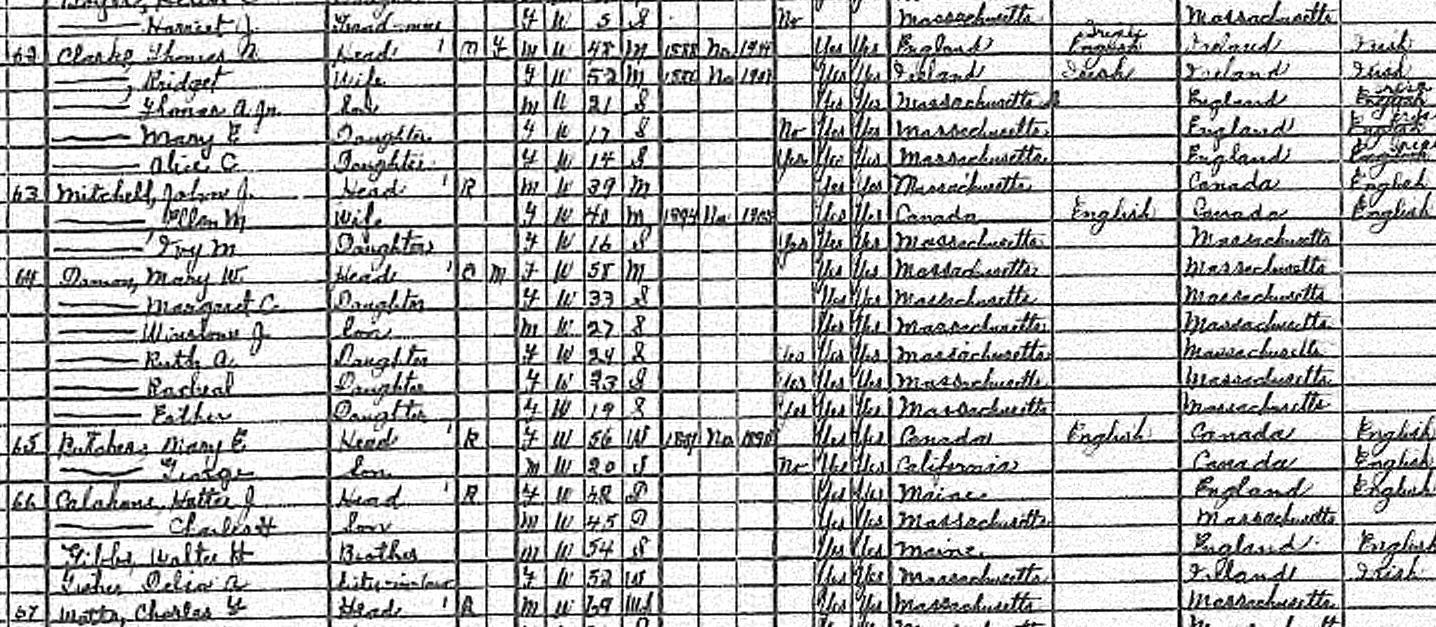 Harriet J. F W 5 S No Massachusetts Massachusetts
62 Clarke, Thomas A. Head 1 O F M W 48 M 1888 Na 1914 Yes Yes England English Irish Ireland Irish
Bridget Wife F W 52 M Na Yes Yes Ireland Irish Ireland Irish
Thomas A. Jr. Son M W 21 S Yes Yes Massachusetts England English Irish
Mary E Daughter F W 17 S No Yes Yes Massachusetts England English Irish
Alice C. Daughter F W 14 S Yes Yes Yes Massachusetts England English Irish
63 Mitchell, John J. Head 1 R M W 39 M Yes Yes Massachusetts Canada English
Ellen M Wife F W 40 M 1894 Na Yes Yes Canada English Canada English
Ivy M Daughter F W 16 S Yes Yes Yes Massachusetts Massachusetts
64 Damon, Mary W. Head 1 O M F W 58 M Yes Yes Massachusetts Massachusetts
Margaret C. Daughter F W 33 S Yes Yes Massachusetts Massachusetts
Winslow J. Son M W 27 S Yes Yes Massachusetts Massachusetts
Ruth A. Daughter F W 24 S Yes Yes Yes Massachusetts Massachusetts
Racheal Daughter F W 23 S Yes Yes Yes Massachusetts Massachusetts
Esther Daughter F W 19 S Yes Yes Yes Massachusetts Massachusetts
65 Mary E Head 1 R F W 56 W Na Yes Yes Canada English Canada English
George Son M W 20 S No Yes Yes California Canada English
66 Hattie J Head 1 R F W D Yes Yes Maine England English
Charles H Son M W 45 D Yes Yes Massachusetts Massachusetts
Gibbs, Walter H Brother M W 54 S Yes Yes Maine England English
Delia A F W 52 W Yes Yes Massachusetts Ireland Irish
67 Watts, Charles F Head 1 R M W 69 Yes Yes Massachusetts Massachusetts